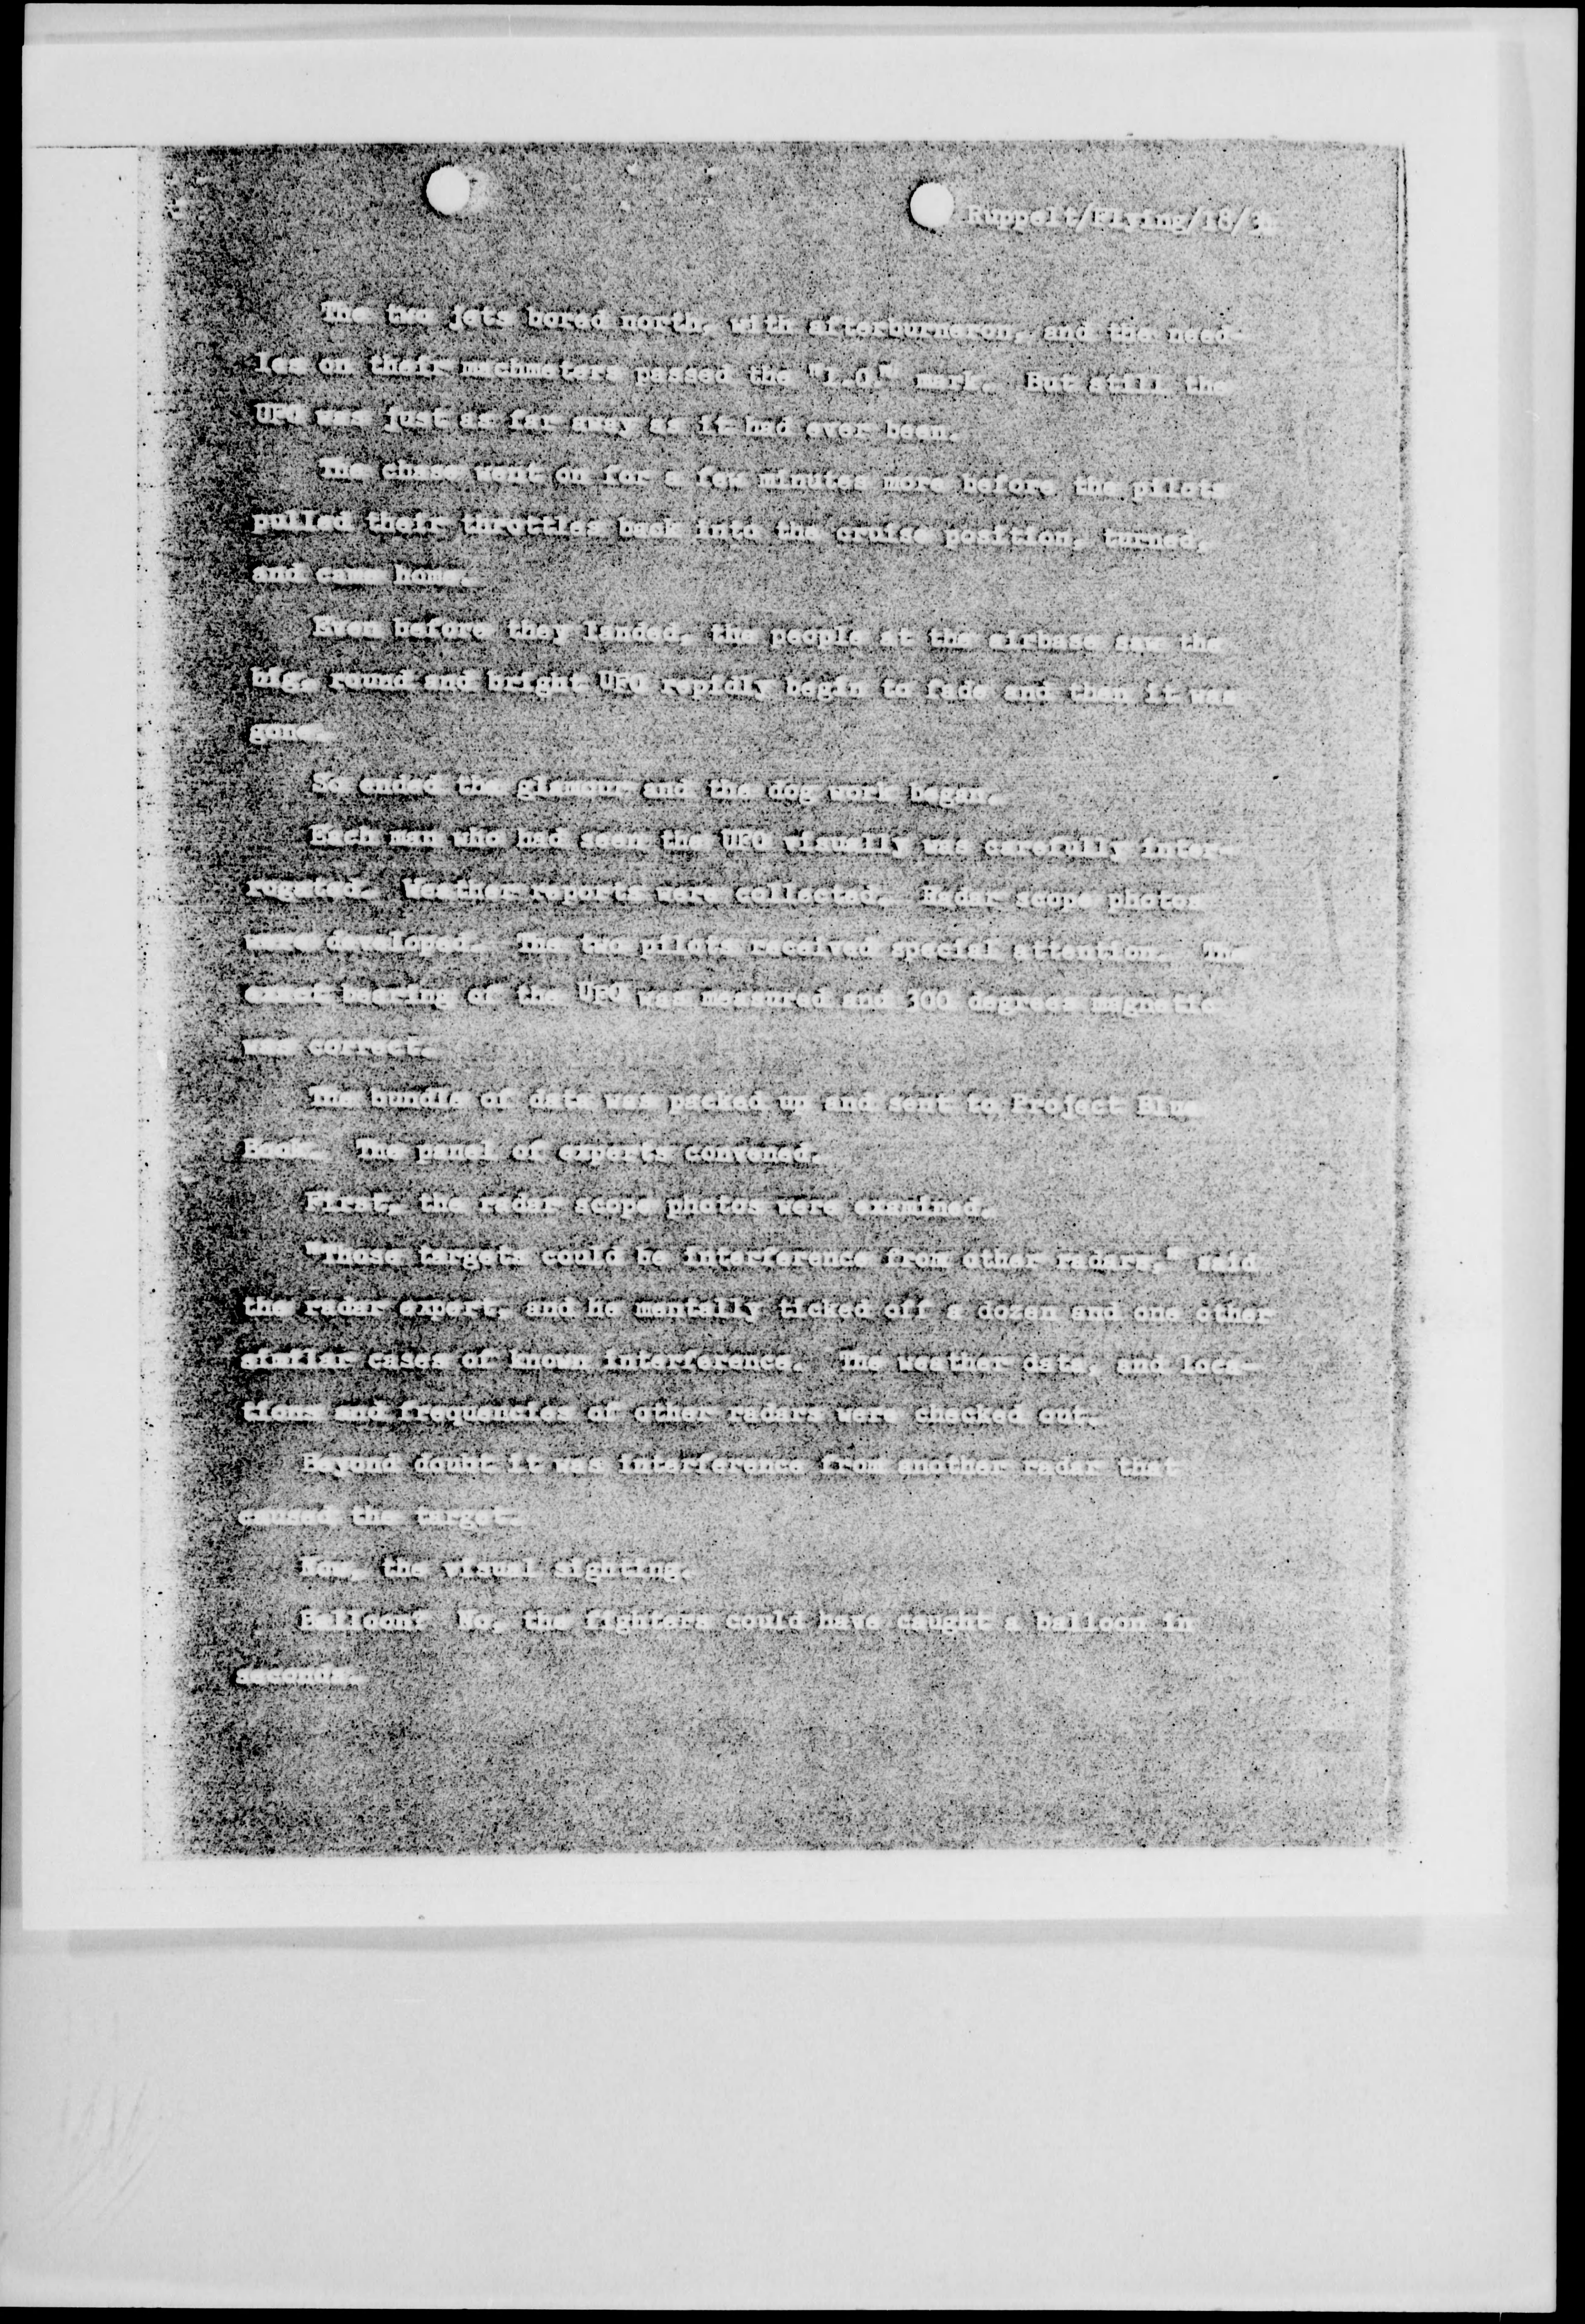 Ruppelt/Flying/18/34
The two jets bored north, with afterburneron, and the need-
les on their machmeters passed the "1.0" mark. But still the
UFO was just as far away as it had ever been.
The chase went on for a few minutes more before the pilots
pulled their throttles back into the cruise position, turned,
and came home.
Even before they landed, the people at the airbase saw the
big, round and bright UFO rapidly begin to fade and then it was
gone.
So ended the glamour and the dog work began.
Each man who had seen the UFO visually was carefully inter-
rogated. Weather reports were collected. Radar scope photos
were developed. The two pilots received special attention. The
exact bearing of the UFO was measured and 300 degrees magnetic
was correct.
The bundle of data was packed up and sent to Project Blue
Book. The panel of experts convened.
First, the radar scope photos were examined.
"Those targets could be interference from other radars," said
the radar expert, and he mentally ticked off a dozen and one other
similar cases of known interference. The weather data, and loca-
tions and frequencies of other radars were checked out.
Beyond doubt it was interference from another radar that
caused the target.
Now, the visual sighting.
Balloon? No, the fighters could have caught a balloon in
seconds.